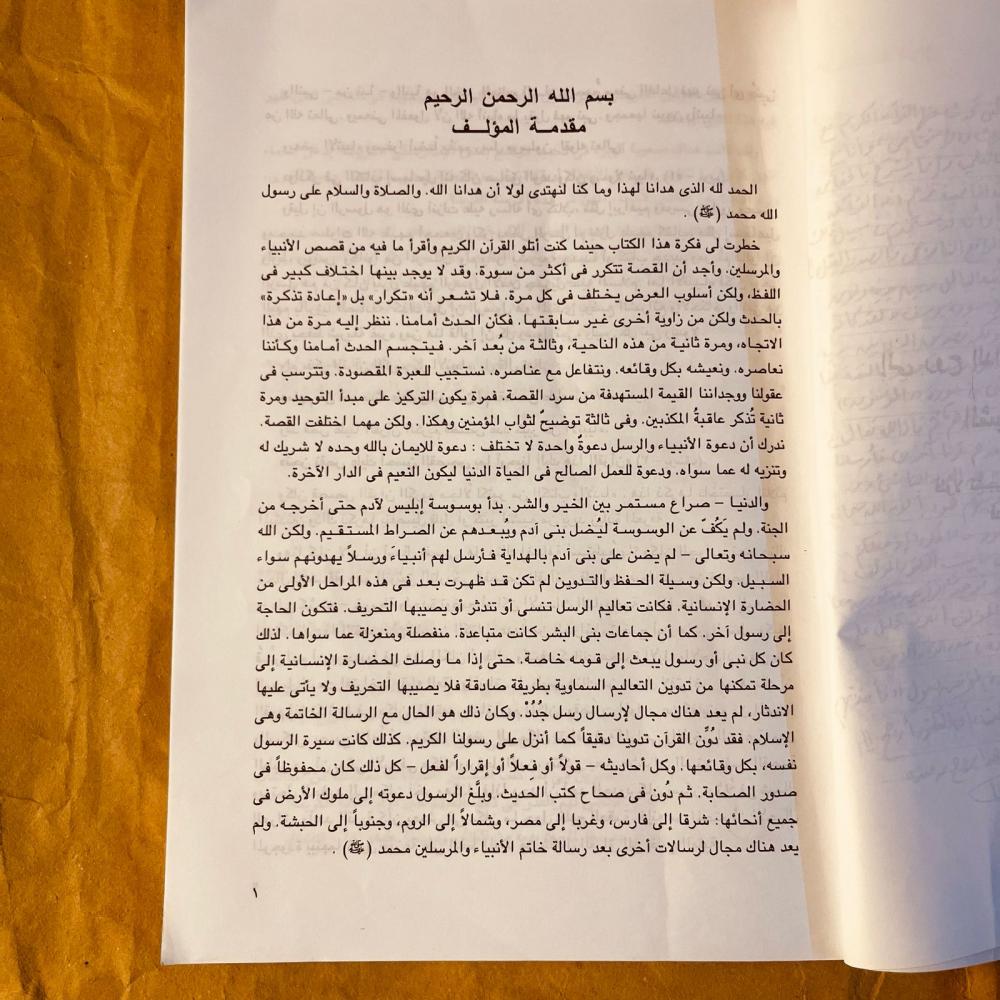 بسم الله الرحمن الرحيم
مقدمــة المؤلــف
الحمد لله الذى هدانا لهذا وما كنا لنهتدى لولا أن هدانا الله. والصلاة والسلام على رسول
الله محمد (ﷺ) .
خطرت لى فكرة هذا الكتاب حينما كنت أتلو القرآن الكريم وأقرأ ما فيه من قصص الأنبياء
والمرسلين. وأجد أن القصة تتكرر فى أكثر من سورة. وقد لا يوجد بينها اختلاف كبير فى
اللفظ، ولكن أسلوب العرض يختلف فى كل مرة. فلا تشعر أنه «تكرار» بل «إعادة تذكرة»
بالحدث ولكن من زاوية أخرى غير سابقتها. فكأن الحدث أمامنا. ننظر إليه مرة من هذا
الاتجاه، ومرة ثانية من هذه الناحية، وثالثة من بُعد آخر. فيتجسم الحدث أمامنا وكأننا
نعاصره. ونعيشه بكل وقائعه. ونتفاعل مع عناصره. نستجيب للعبرة المقصودة. وتترسب فى
عقولنا ووجداننا القيمة المستهدفة من سرد القصة. فمرة يكون التركيز على مبدأ التوحيد ومرة
ثانية تُذكر عاقبةُ المكذبين. وفى ثالثة توضيحٌ لثواب المؤمنين وهكذا. ولكن مهما اختلفت القصة.
ندرك أن دعوة الأنبياء والرسل دعوةٌ واحدة لا تختلف : دعوة للايمان بالله وحده لا شريك له
وتنزيه له عما سواه. ودعوة للعمل الصالح فى الحياة الدنيا ليكون النعيم فى الدار الآخرة.
والدنيا – صراع مستمر بين الخير والشر. بدأ بوسوسة إبليس لآدم حتى أخرجه من
الجنة. ولم يَكُفّ عن الوسوسة ليُضل بنى آدم ويُبعدهم عن الصراط المستقيم. ولكن الله
سبحانه وتعالى – لم يضن على بنى آدم بالهداية فأرسل لهم أنبياءَ ورسلاً يهدونهم سواء
السبيل. ولكن وسيلة الحفظ والتدوين لم تكن قد ظهرت بعد فى هذه المراحل الأولى من
الحضارة الإنسانية. فكانت تعاليم الرسل تنسى أو تندثر أو يصيبها التحريف. فتكون الحاجة
إلى رسول آخر. كما أن جماعات بنى البشر كانت متباعدة. منفصلة ومنعزلة عما سواها. لذلك
كان كل نبى أو رسول يبعث إلى قومه خاصة. حتى إذا ما وصلت الحضارة الإنسانية إلى
مرحلة تمكنها من تدوين التعاليم السماوية بطريقة صادقة فلا يصيبها التحريف ولا يأتى عليها
الاندثار، لم يعد هناك مجال لإرسال رسل جُدُدْ. وكان ذلك هو الحال مع الرسالة الخاتمة وهى
الإسلام. فقد دُوِّن القرآن تدوينا دقيقاً كما أنزل على رسولنا الكريم. كذلك كانت سيرة الرسول
نفسه، بكل وقائعها. وكل أحاديثه – قولاً أو فِعلاً أو إقراراً لفعل – كل ذلك كان محفوظاً فى
صدور الصحابة. ثم دُون فى صحاح كتب الحديث. وبلَّغ الرسول دعوته إلى ملوك الأرض فى
جميع أنحائها: شرقا إلى فارس، وغربا إلى مصر، وشمالاً إلى الروم، وجنوباً إلى الحبشة. ولم
يعد هناك مجال لرسالات أخرى بعد رسالة خاتم الأنبياء والمرسلين محمد (ﷺ) .
١